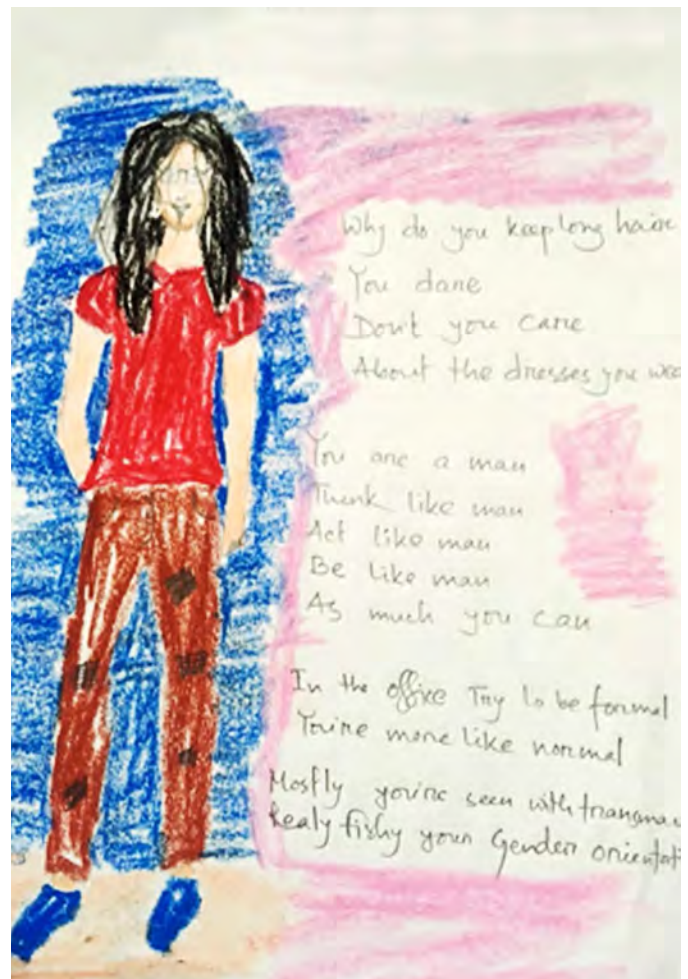 Why do you keep long haire
You dare
Don't you care
About the dresses you wea
You are a man
Think like man
Act like man
Be like man
As much you can
In the office Try to be formal
You're more like normal
Mostly you're seen with transma
Realy fishy your Gender orientat